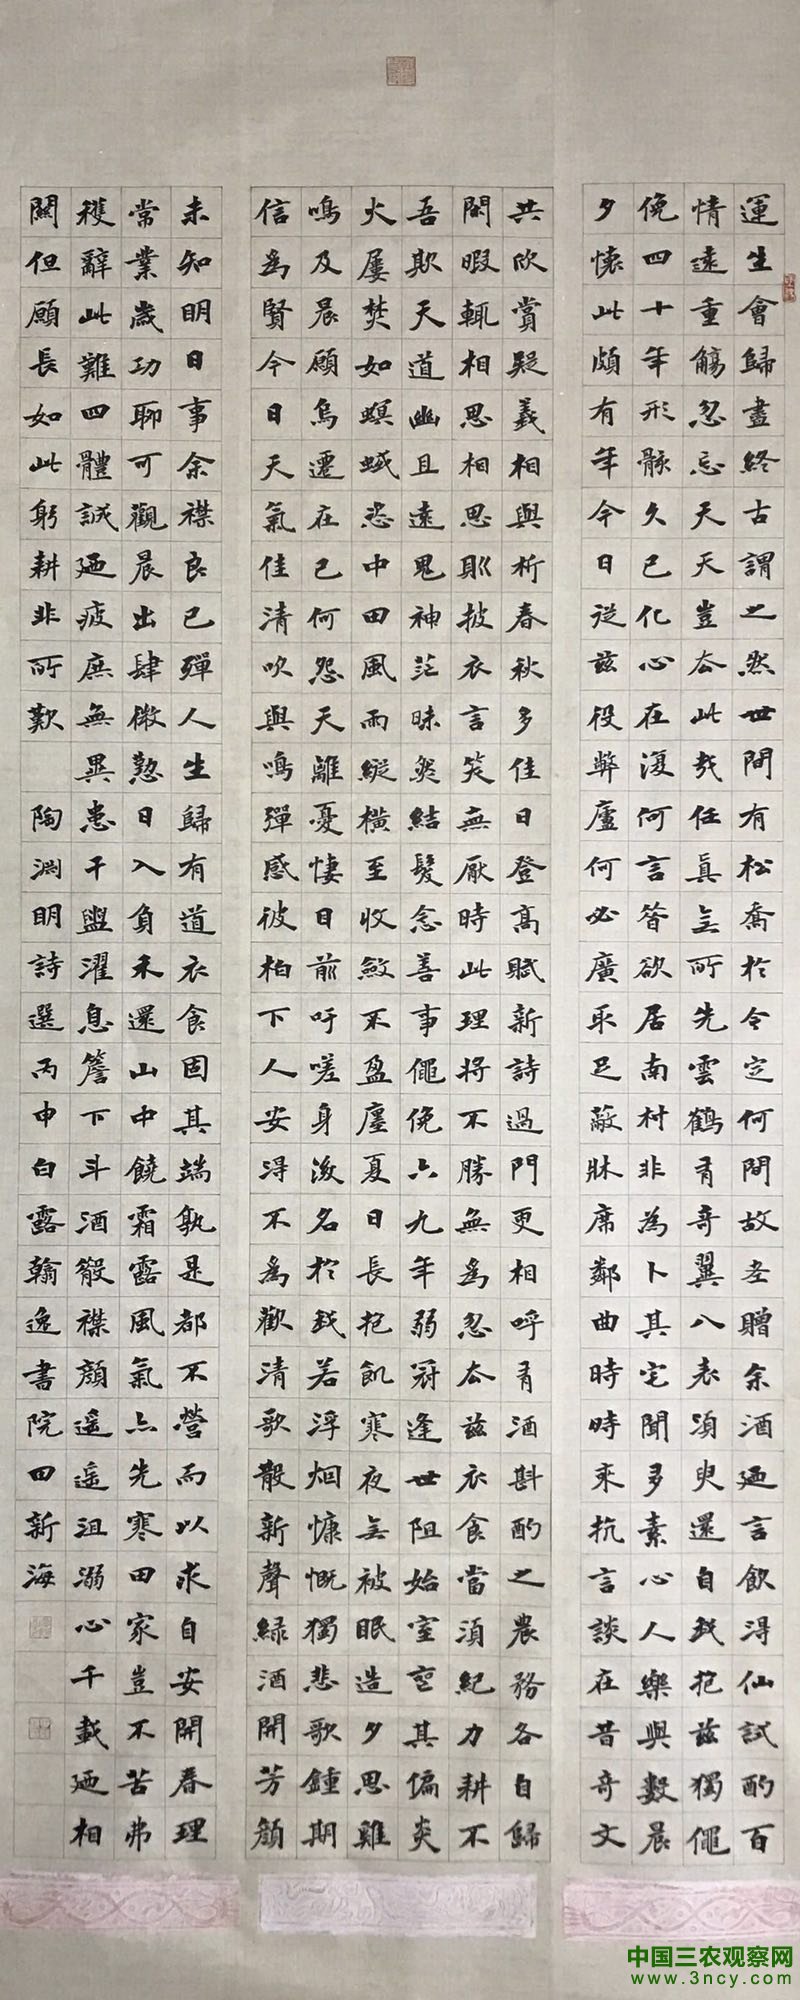 運生會歸盡終古謂之然世間有松喬於今定何間故老贈余酒廼言飲得仙試酌百
情遠重觴忽忘天天豈去此哉任真無所先雲鶴有奇翼八表須臾還自我抱茲獨僶
俛四十年形骸久已化心在復何言昔欲居南村非為卜其宅聞多素心人樂與數晨
夕懷此頗有年今日從茲役弊廬何必廣取足蔽牀席鄰曲時時來抗言談在昔奇文
共欣賞疑義相與析春秋多佳日登高賦新詩過門更相呼有酒斟酌之農務各自歸
閑暇輒相思相思則披衣言笑無厭時此理將不勝無為忽去茲衣食當須紀力耕不
吾欺天道幽且遠鬼神茫昧然結髮念善事僶俛六九年弱冠逢世阻始室喪其偏炎
火屢焚如螟蜮恣中田風雨縱橫至收斂不盈廛夏日長抱飢寒夜無被眠造夕思雞
鳴及晨願烏遷在己何怨天離憂悽日前吁嗟身後名於我若浮烟慷慨獨悲歌鍾期
信為賢今日天氣佳清吹與鳴彈感彼柏下人安得不為歡清歌散新聲綠酒開芳顏
未知明日事余襟良已殫人生歸有道衣食固其端孰是都不營而以求自安開春理
常業歲功聊可觀晨出肆微勤日入負禾還山中饒霜露風氣亦先寒田家豈不苦弗
穫辭此難四體誠廼疲庶無異患干盥濯息簷下斗酒散襟顏遙遙沮溺心千載廼相
關但願長如此躬耕非所歎 陶淵明詩選丙申白露翰逸書院田新海
中国三农观察网
www.3ncy.com